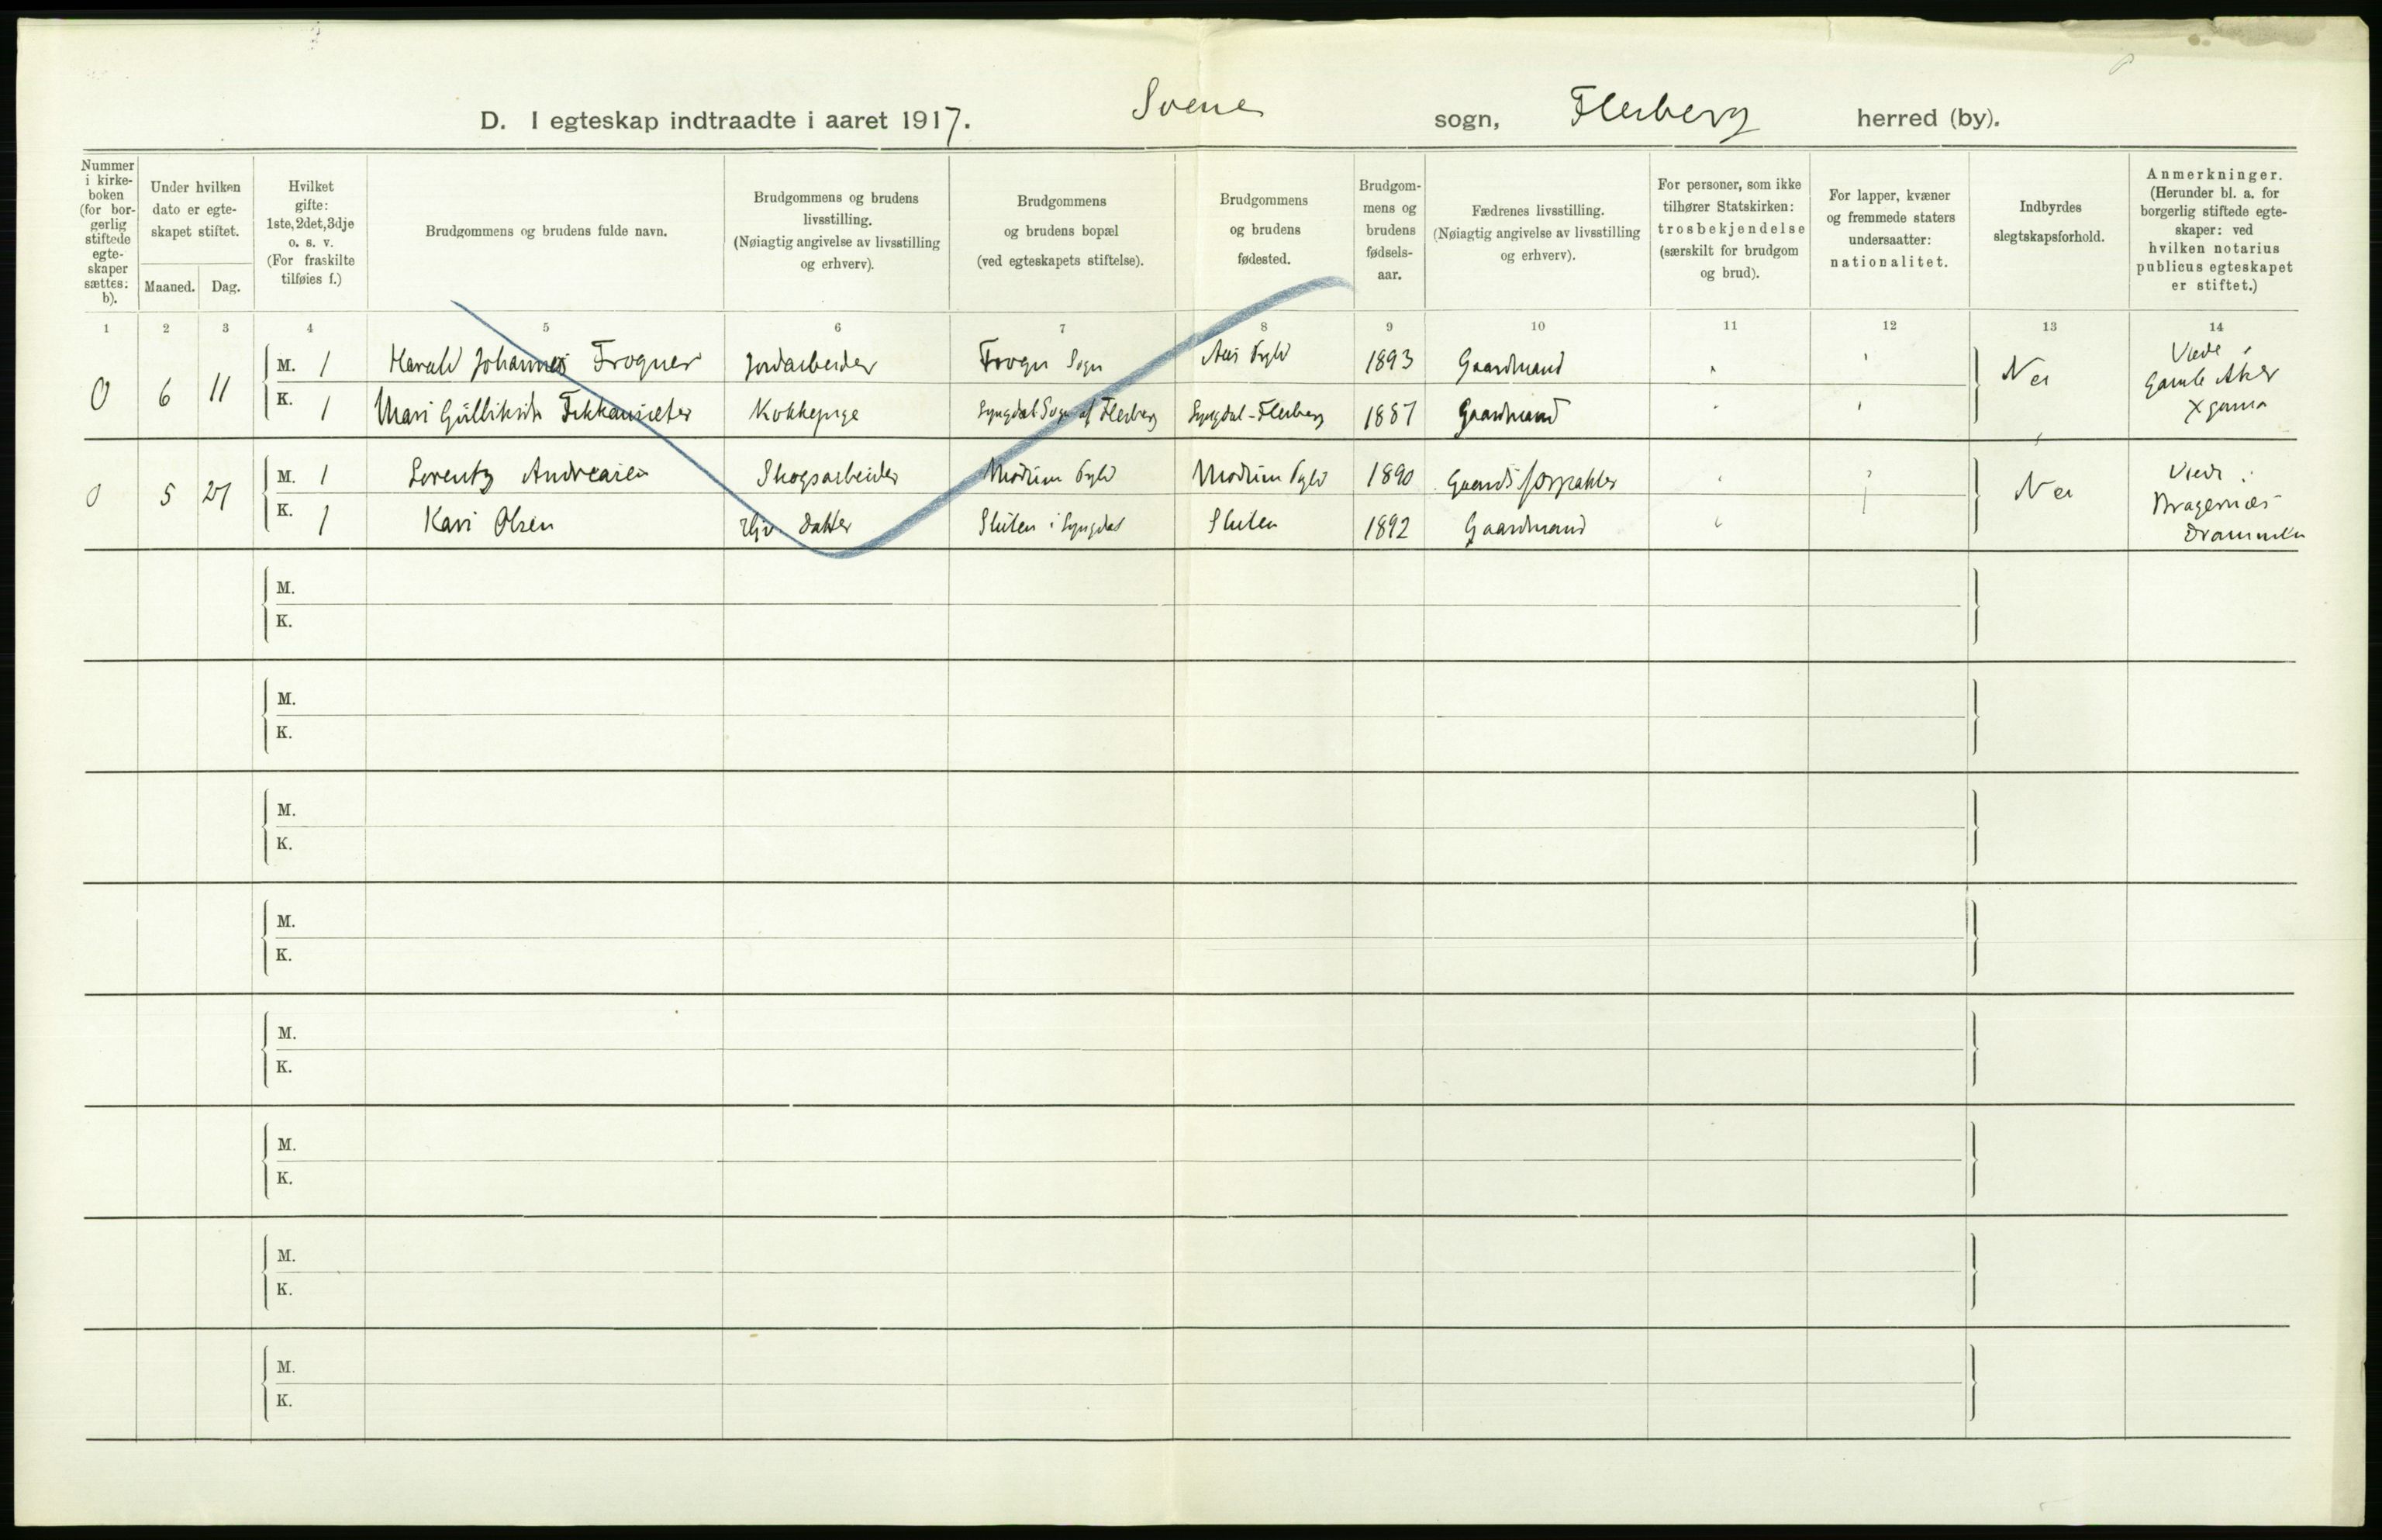 D. I egteskap indtraadte i aaret 1917. Svene sogn, Flesberg herred (by).
Nummer i kirke-boken (for bor-gerlig stiftede egte-skaper sættes: b).
Under hvilken dato er egte-skapet stiftet.
Maaned. Dag.
Hvilket gifte: 1ste, 2det, 3dje o. s. v. (For fraskilte tilføies f.)
Brudgommens og brudens fulde navn.
Brudgommens og brudens livsstilling. (Nøiagtig angivelse av livsstilling og erhverv).
Brudgommens og brudens bopæl (ved egteskapets stiftelse).
Brudgommens og brudens fødested.
Brudgom-mens og brudens fødsels-aar.
Fædrenes livsstilling. (Nøiagtig angivelse av livsstilling og erhverv).
For personer, som ikke tilhører Statskirken: trosbekjendelse (særskilt for brudgom og brud).
For lapper, kvæner og fremmede staters undersaatter: nationalitet.
Indbyrdes slegtskapsforhold.
Anmerkninger. (Herunder bl. a. for borgerlig stiftede egte-skaper: ved hvilken notarius publicus egteskapet er stiftet.)
1 2 3 4 5 6 7 8 9 10 11 12 13 14
0 6 11 M. 1 Harald Johannes Frogner Jordarbeider Frogn Sogn Aas Pgld 1893 Gaardmand Nei Viede i Gamle Aker
K. 1 Mari Gulliksdt Kokkepige Lyngdal Sogn af Flesberg Lyngdal-Flesberg 1887 Gaardmand
0 5 27 M. 1 Lorentz Andreasen Skogsarbeider Modum Pgld Modum Pgld 1890 Gaards forpakter Nei Viede i Bragernæs Drammen
K. 1 Kari Olsen Hjv. Datter i Lyngdal 1892 Gaardmand
M.
K.
M.
K.
M.
K.
M.
K.
M.
K.
M.
K.
M.
K.
M.
K.